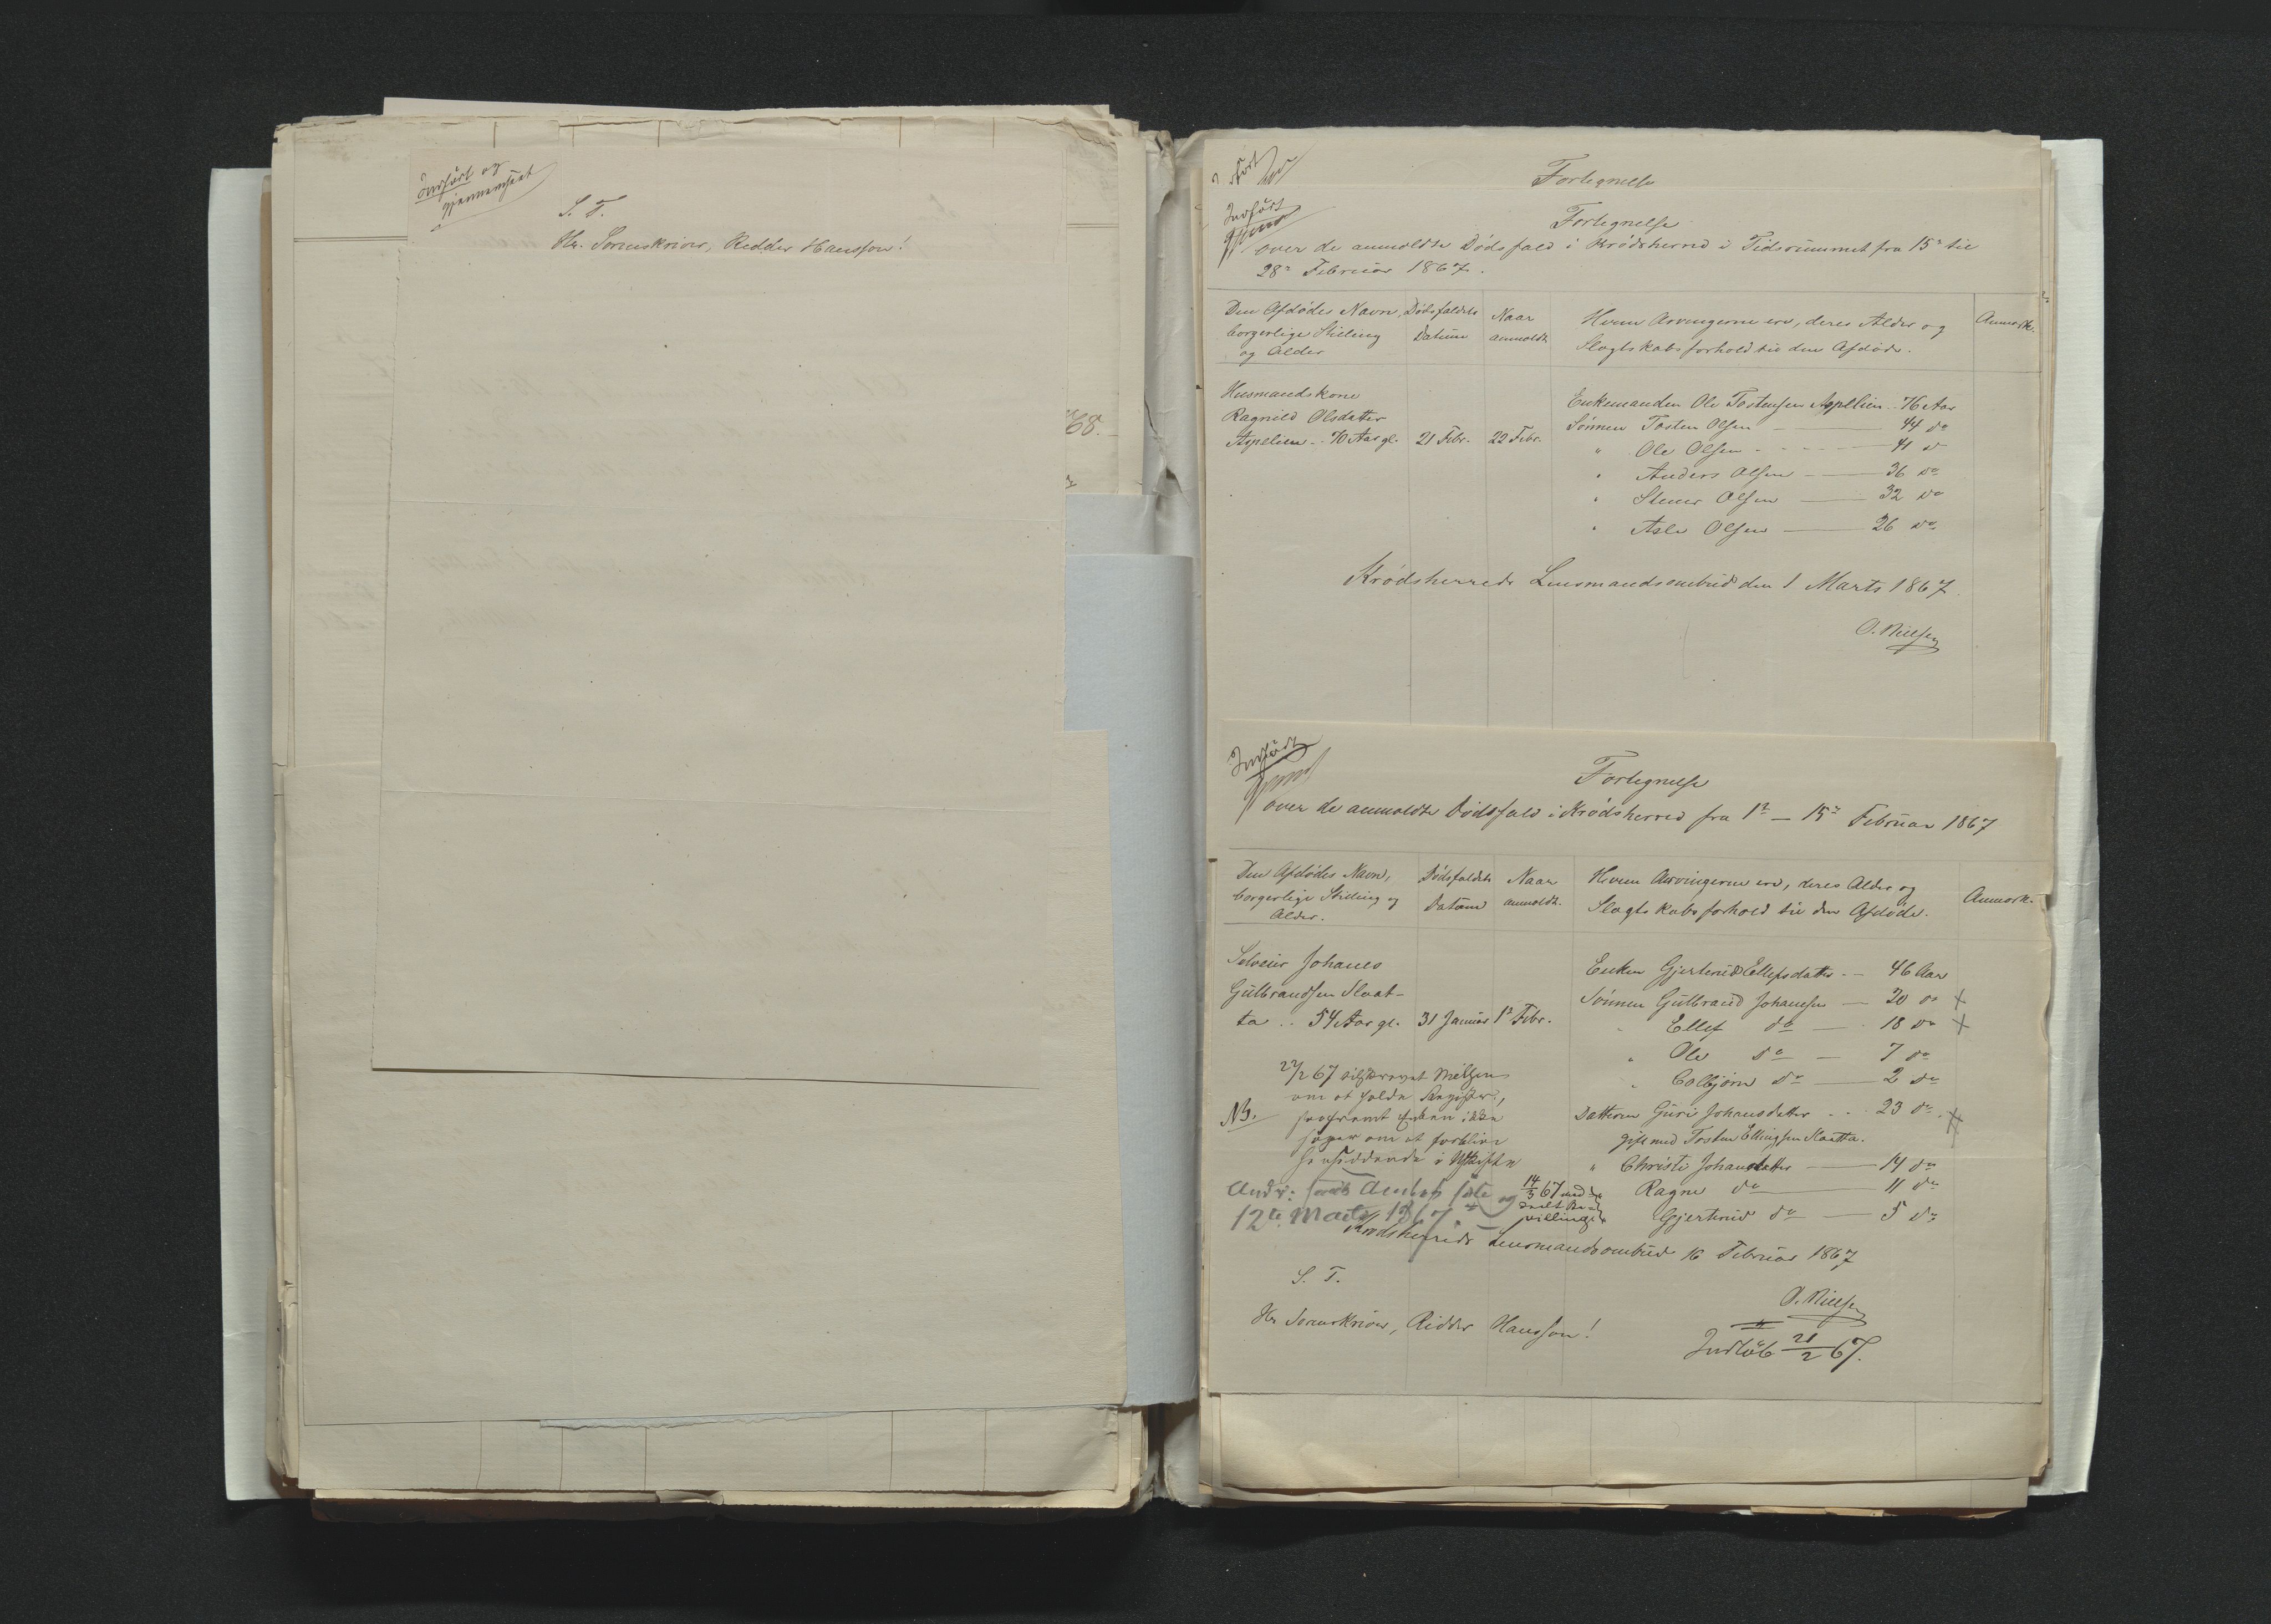 Indført og
gjennemseet
S. T.
Hr. Sorenskriver, Ridder Hansson!
68.
Fortegnelse
Indført
Fortegnelse
over de anmeldte Dødsfald i Krødsherred i Tidsrummet fra 15de til
28de Februar 1867.
Den Afdødes Navn, borgerlige Stilling og Alder
Dødsfaldets Datum
Naar anmeldt
Hvem Arvingerne ere, deres Alder og Slægtskabsforhold til den Afdøde.
Anmærk.
Husmandskone
Ragnild Olsdatter
Aspelien .. 70 Aar gl. 21 Febr. 22 Febr.
Enkemanden Ole Tostensen Aspelien .. 76 Aar
Sønnen Tosten Olsen — 44 do
" Ole Olsen - - - 41 do
" Anders Olsen — 36 do
" Stener Olsen — 32 do
" Asle Olsen — 26 do
Krødsherreds Lensmandsombud den 1 Marts 1867
O. Nielsen
Indført
Fortegnelse
over de anmeldte Dødsfald i Krødsherred fra 1de — 15de Februar 1867
Den Afdødes Navn, borgerlige Stilling og Alder.
Dødsfaldets Datum
Naar anmeldt.
Hvem Arvingerne ere, deres Alder og Slægtskabsforhold til den Afdøde.
Anmærk.
Selveier Johannes
Gulbrandsen Slaat-
ta .. 54 Aar gl. 31 Januar 1de Febr.
Enken Gjertrud Ellefsdatter .. 46 Aar
Sønnen Gulbrand Johannesen — 20 do +
" Ellef do — 18 do +
" Ole do — 7 do
" Colbjørn do — 2 do
Datteren Guri Johansdatter - - 23 do
gift med Tosten Ellingsen Slaatta.
" Christi Johansdatter — 14 do
" Ragne do — 11 do
Gjertrud do — 5 do
22/2 67 tilskrevet Nielsen
om at holde Registr.,
saafremt Enken ikke
søger om at forblive
hensiddende i Uskifte
NB.
12te Marts 1867
14/3 67
Krødsherreds Lensmandsombud 16 Februar 1867
O. Nielsen
S. T.
Hr Sorenskriver, Ridder Hansson!
Indløb 21/2 67.